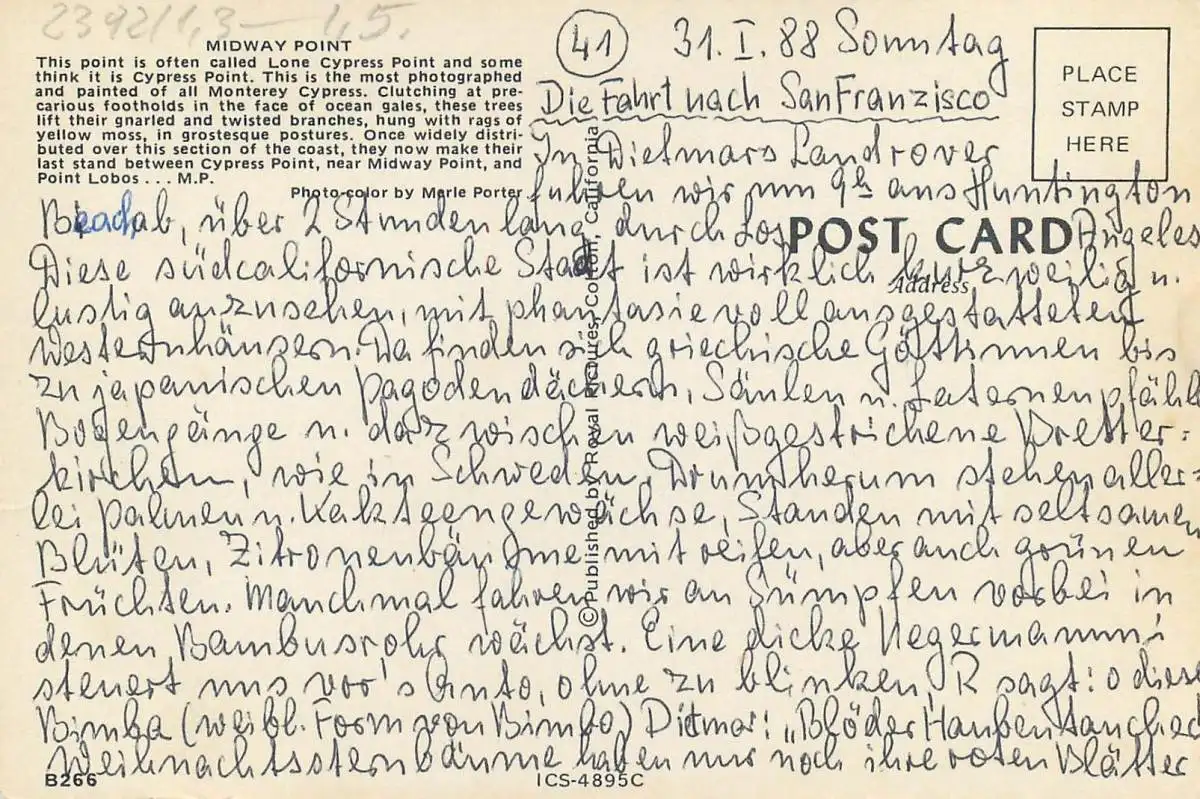 2392/1,3 — 45.
MIDWAY POINT
This point is often called Lone Cypress Point and some
think it is Cypress Point. This is the most photographed
and painted of all Monterey Cypress. Clutching at pre-
carious footholds in the face of ocean gales, these trees
lift their gnarled and twisted branches, hung with rags of
yellow moss, in grostesque postures. Once widely distri-
buted over this section of the coast, they now make their
last stand between Cypress Point, near Midway Point, and
Point Lobos . . . M.P.
Photo-color by Merle Porter
41 31. I. 88 Sonntag
PLACE
STAMP
HERE
Die Fahrt nach SanFranzisco
In Dietmars Landrover
fuhren wir um 9h aus Huntington
Beach ab, über 2 Stunden lang durch Los Angeles
POST CARD
Address
Diese südcalifornische Stadt ist wirklich kurzweilig u.
lustig anzusehen, mit phantasievoll ausgestatteten
Westernhäusern. Da finden sich griechische Göttinnen bis
zu japanischen Pagodendächern, Säulen u. Laternenpfähle
Bogengänge u. dazwischen weißgestrichene Bretter-
kirchen, wie in Schweden. Drumherum stehen aller-
lei Palmen u. Kakteengewächse, Stauden mit seltsamen
Blüten, Zitronenbäume mit reifen, aber auch grünen
Früchten. Manchmal fahren wir an Sümpfen vorbei in
denen Bambusrohr wächst. Eine dicke Negermammi
steuert uns vor's Auto, ohne zu blinken, R sagt: o diese
Bimba (weibl. Form von Bimbo) Dietmar: „Blöder Haubentaucher
Weihnachtssternbäume haben nur noch ihre roten Blätter
©Published by Royal Pictures, Colton, California
B266
ICS-4895C